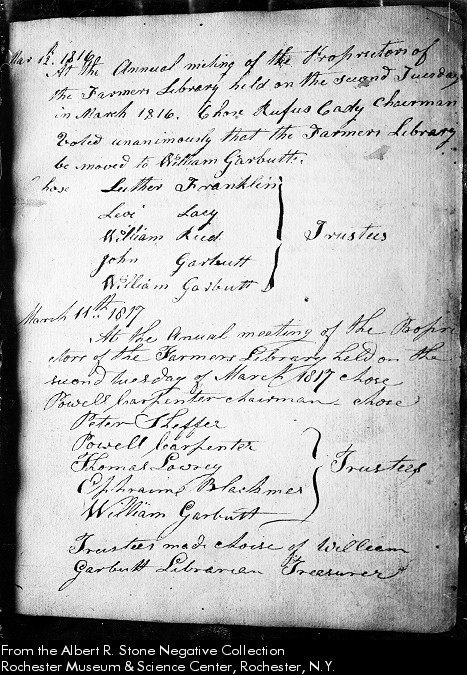 Mar 12. 1816
At the Annual meting of the Proprietors of
the Farmers Library held on the second Tuesday
in March 1816. Chose Rufus Cady Chairman
Voted unanimously that the Farmers Library
be moved to William Garbutts.
hose Luther Franklin
Levi Lacy
William Reed
John Garbutt
William Garbutt
Trustees
March 11th 1817
At the Anual meeting of the Propri
etors of the Farmers Library held on the
second tuesday of March 1817 chose
Powell Carpenter chairman chose
Peter Sheffer
Powell Carpenter
Thomas Lowrey
Ephraim Blackmer
William Garbutt
Trustees
Trustees made choise of William
Garbutt Librarian Treasurer
From the Albert R. Stone Negative Collection
Rochester Museum & Science Center, Rochester, N.Y.